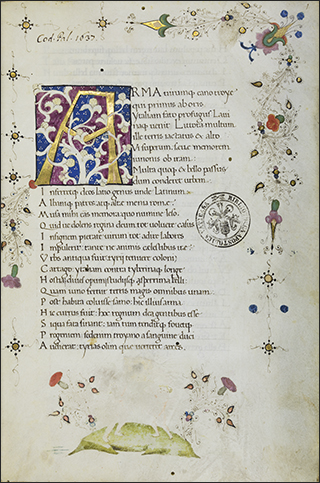 Cod. Pal.
ARMA virumque cano troye
qui primus ab oris
Ytaliam fato profugus Lavi
naque venit Litora multum
ille terris iactatus & alto
Vi superum, seve memorem
iunonis ob iram.
Multa quoque & bello passus
dum conderet urbem
Inferretque deos latio genus unde Latinum
Albanique patres, atque alte menia rome.
Musa mihi causas memora quo numine leso.
Quidve dolens regina deum tot volvere casus
Insignem pietate virum tot adire labores
Impulerit tante ne animis celestibus ire
Urbs antiqua fuit tyrii tenuere coloni
Cartago ytaliam contra tyberinaque longe
Hostia dives opum studiisque asperrima belli
Quam iuno fertur terris magis omnibus unam
Post habita coluisse samo hic illius arma
Hic currus fuit hoc regnum dea gentibus esse
Si qua fata sinant iam tum tenditque fovetque
Progeniem sed enim troyano a sanguine duci
Audierat tyrias olim que verteret arces